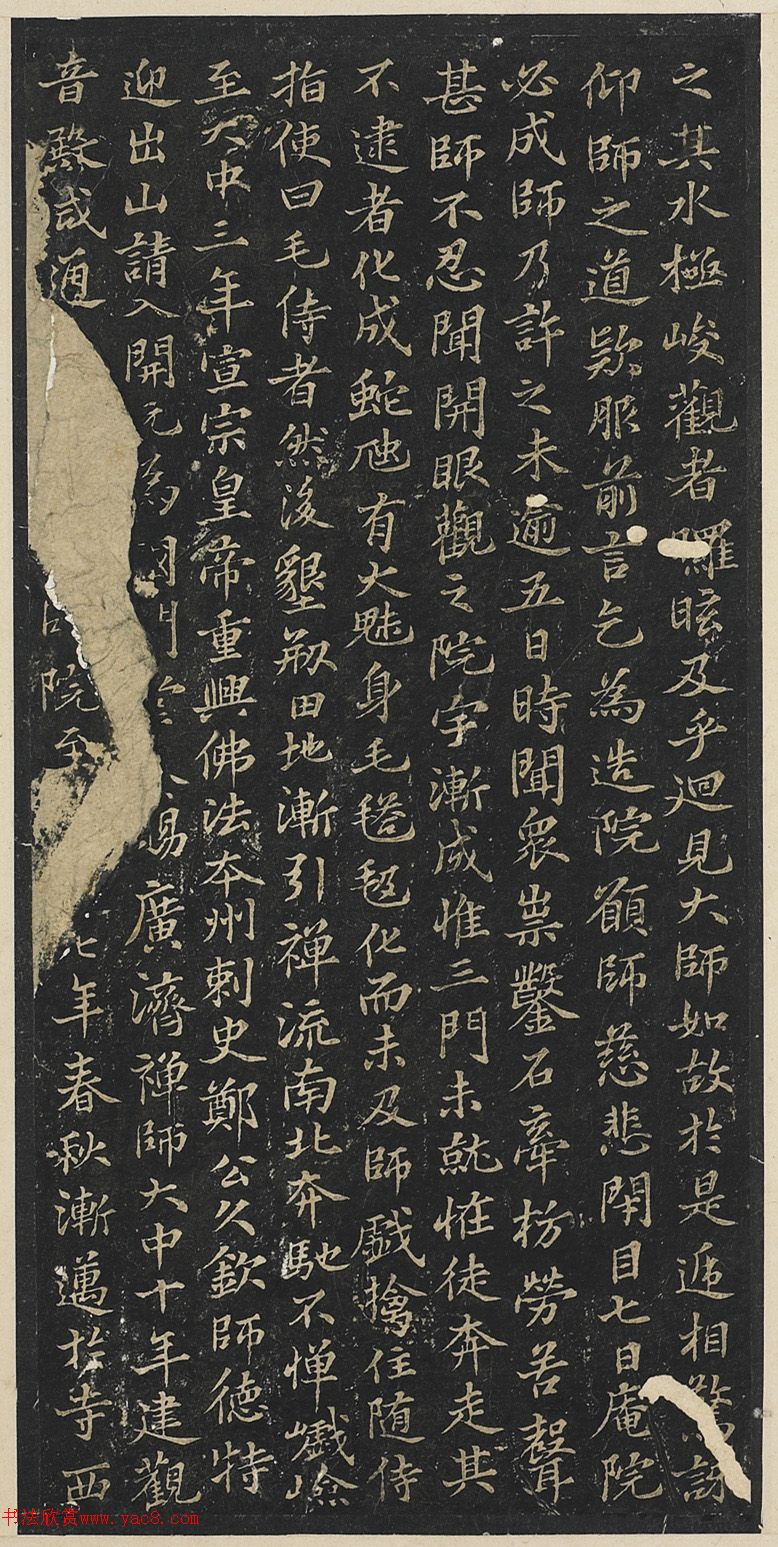 之其水極峻觀者矐眩及乎迴見大師如故於是遞相驚訝
仰師之道歎服前言乞為造院願師慈悲閉目七日庵院
必成師乃許之未逾五日時聞衆祟鑿石牽枋勞苦聲
甚師不忍聞開眼觀之院宇漸成惟三門未就恠徒奔走其
不逮者化成蛇虺有大魅身毛毿毿化而未及師戲擒住随侍
指使曰毛侍者然後墾㓝田地漸引禅流南北奔馳不憚巇嶮
至大中三年宣宗皇帝重興佛法本州刺史鄭公久欽師德特
迎出山請入開元為國 廣濟禅師大中十年建觀
音殿咸通 院至 七年春秋漸邁於寺西
书法欣赏www.yac8.com